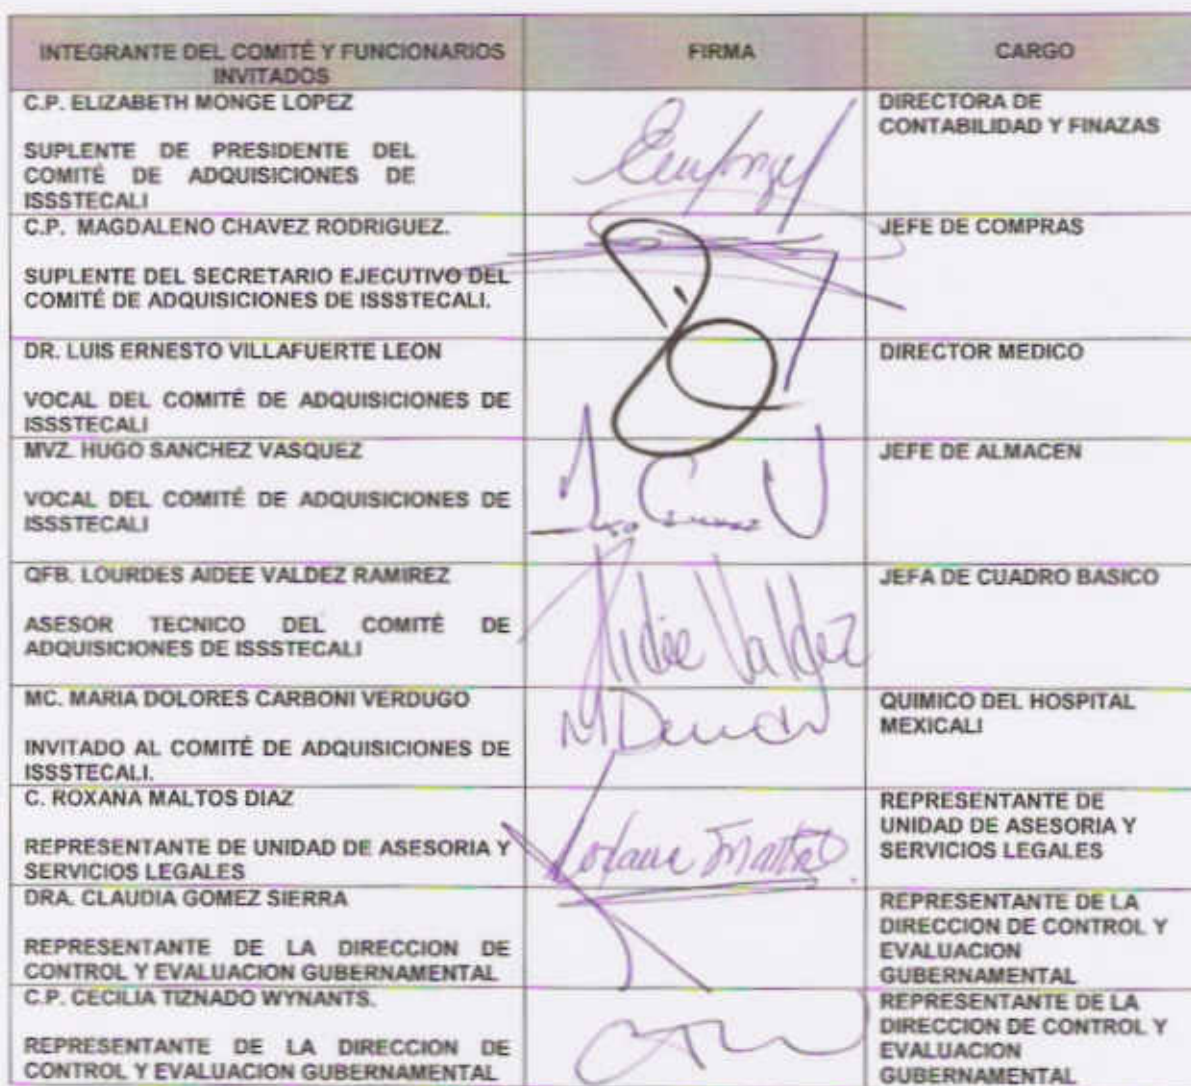 INTEGRANTE DEL COMITÉ Y FUNCIONARIOS
INVITADOS
FIRMA
CARGO
C.P. ELIZABETH MONGE LOPEZ
SUPLENTE DE PRESIDENTE DEL
COMITÉ DE ADQUISICIONES DE
ISSSTECALI
DIRECTORA DE
CONTABILIDAD Y FINAZAS
C.P. MAGDALENO CHAVEZ RODRIGUEZ.
SUPLENTE DEL SECRETARIO EJECUTIVO DEL
COMITÉ DE ADQUISICIONES DE ISSSTECALI.
JEFE DE COMPRAS
DR. LUIS ERNESTO VILLAFUERTE LEON
VOCAL DEL COMITÉ DE ADQUISICIONES DE
ISSSTECALI
DIRECTOR MEDICO
MVZ. HUGO SANCHEZ VASQUEZ
VOCAL DEL COMITÉ DE ADQUISICIONES DE
ISSSTECALI
JEFE DE ALMACEN
QFB. LOURDES AIDEE VALDEZ RAMIREZ
ASESOR TECNICO DEL COMITÉ DE
ADQUISICIONES DE ISSSTECALI
Aidee Valdez
JEFA DE CUADRO BASICO
MC. MARIA DOLORES CARBONI VERDUGO
INVITADO AL COMITÉ DE ADQUISICIONES DE
ISSSTECALI.
QUIMICO DEL HOSPITAL
MEXICALI
C. ROXANA MALTOS DIAZ
REPRESENTANTE DE UNIDAD DE ASESORIA Y
SERVICIOS LEGALES
REPRESENTANTE DE
UNIDAD DE ASESORIA Y
SERVICIOS LEGALES
DRA. CLAUDIA GOMEZ SIERRA
REPRESENTANTE DE LA DIRECCION DE
CONTROL Y EVALUACION GUBERNAMENTAL
REPRESENTANTE DE LA
DIRECCION DE CONTROL Y
EVALUACION
GUBERNAMENTAL
C.P. CECILIA TIZNADO WYNANTS.
REPRESENTANTE DE LA DIRECCION DE
CONTROL Y EVALUACION GUBERNAMENTAL
REPRESENTANTE DE LA
DIRECCION DE CONTROL Y
EVALUACION
GUBERNAMENTAL